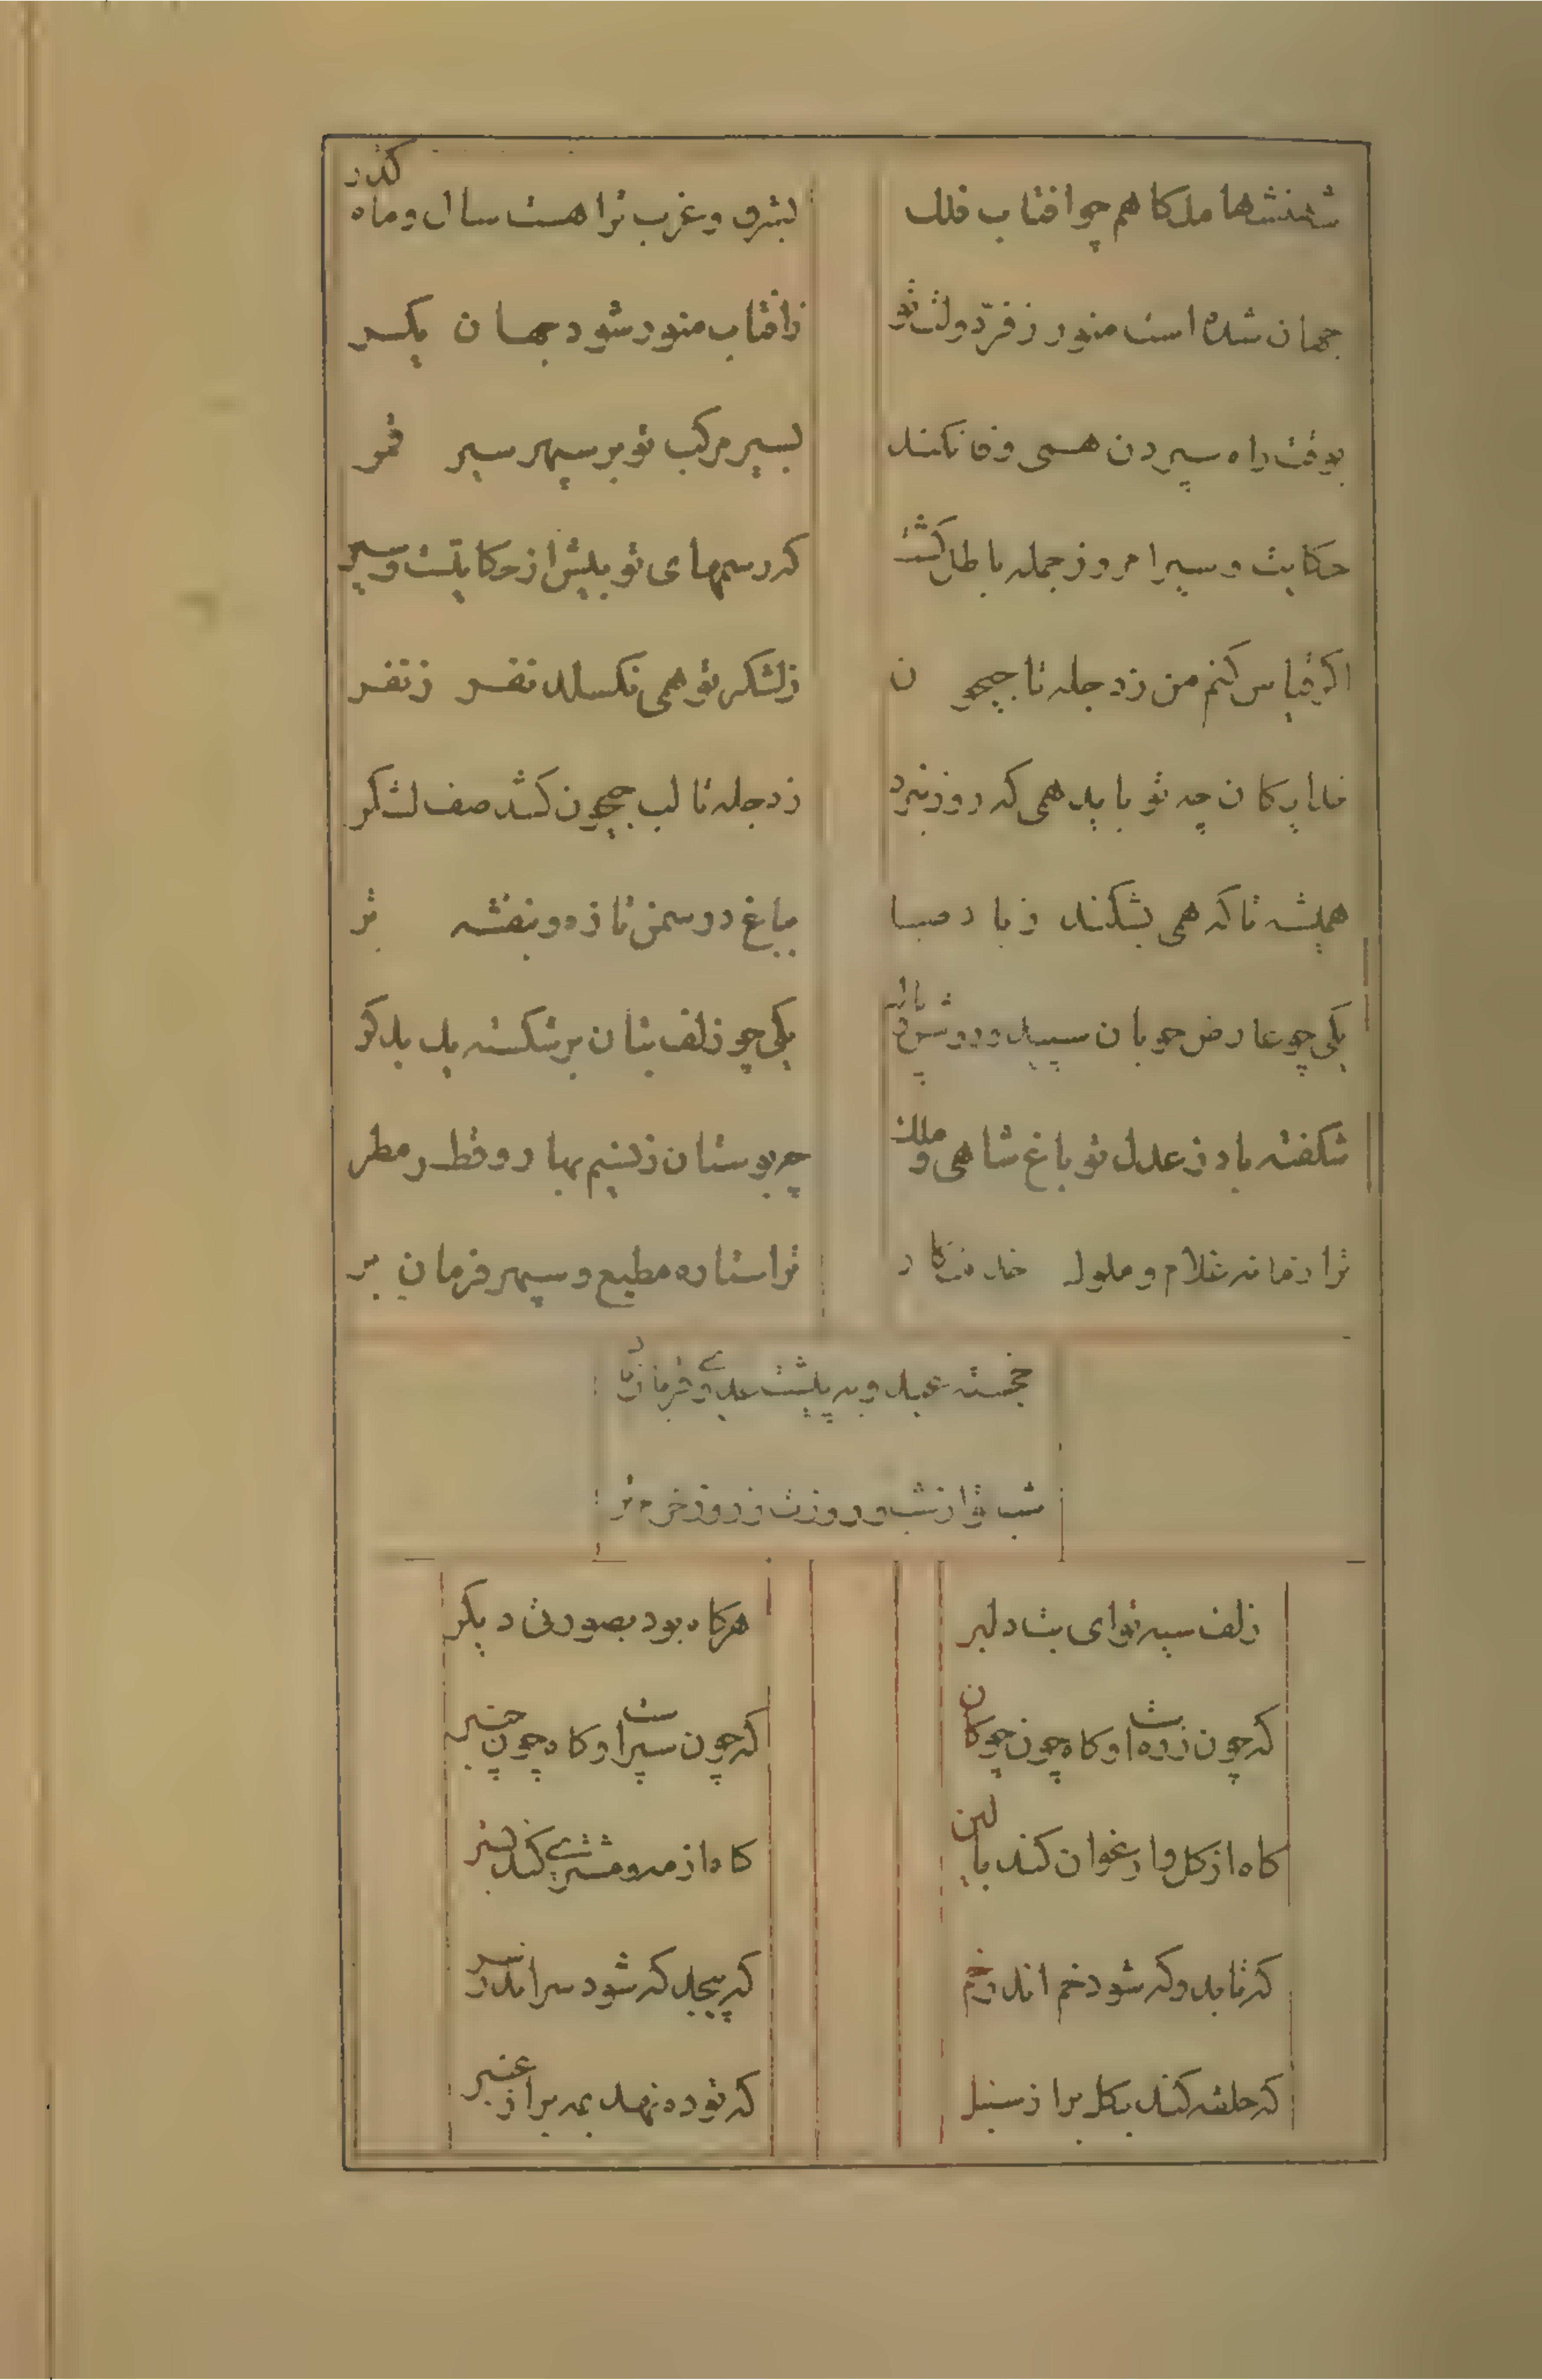 شهنشها ملکا هم چو افتاب فلک
بشرق و غرب ترا هست سال و ماه کذر
جهان شده است منور ز فرّ دولت تو
ز افتاب منور شود جهان یکسر
بوقت راه سپردن همی وفا نکند
بسیر مرکب تو بر سپهر سیر قمر
حکایت و سیر امروز جمله باطل کشت
که رسمهای تو بیش از حکایتست و سیر
اکر قیاس کنم من ز دجله تا جیحون
ز لشکر تو همی نکسلد نفر ز نفر
خدایکان چه تو باید همی که روز نبرد
ز دجله تا لب جیحون کشد صف لشکر
همیشه تا که همی بشکند ز باد صبا
بباغ در سمن تازه و بنفشه تر
یکی چو عارض خوبان سپید و روشن و پاک
یکی چو زلف بتان بر شکسته یک بدکر
شکفته باد ز عدل تو باغ شاهی و ملک
چو بوستان ز نسیم بهار و قطر مطر
ترا زمانه غلام و ملوک خدمتکار
ترا ستاره مطیع و سپهر فرمان بر
خجسته عید و به پیشت
شب تو از شب و روزت ز روز خرم تر
زلف سیه تو ای بت دلبر
هر کاه بود بصورتی دیکر
که چون زره است او کاه چون چوکان
که چون سپر است او کاه چون چنبر
کاه از کل و ارغوان کند بالین
کاه از مه و مشتری کند بستر
که تابد و که شود خم اندر خم
که پیچد که شود سر اندر سر
که حلقه کند بکل بر از سنبل
که توده نهد بمه بر از عنبر